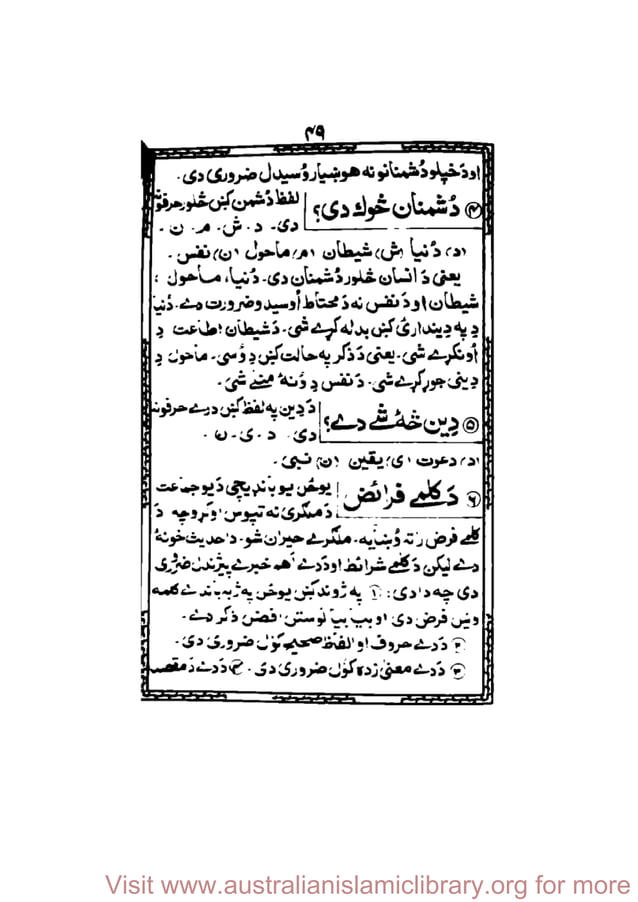 ۴۹
او دَ خپلو دُشمنانو نه هوښیار وُسیدل ضروری دی.
④ دُشمنان څوك دی؟
لفظ دُشمن کښ څلور حرفونه
دی. د. ش. م. ن.
(د) دُنیا (ش) شیطان (م) ماحول (ن) نفس.
یعنی دَ انسان څلور دُشمنان دی. دُنیا، ماحول،
شیطان او دَ نفس نه دَ محتاط اُوسیدو ضرورت دے. دُنیا
دِ په دِینداری کښ بدله کړے شی. دَ شیطان اِطاعت دِ
اُونکړے شی. یعنی دَ ذکر په حالت کښ دِ وُسی. ماحول دِ
دِینی جوړ کړے شی. دَ نفس دِ وُنهٔ منلے شی.
⑤ دِین څهٔ شے دے؟
دَ دِین په لفظ کښ درے حرفونه
دی. د. ی. ن.
(د) دعوت (ی) یقین (ن) نبی.
⑥ دَ کلمے فرائض
یوځل یو باندیچی دَ یو جماعت
دَ ملګری نه تپوس اوکړو چه دَ
کلمے فرض راته وُښایه. ملګرے حیران شو. دا حدیث خونهٔ
دے لیکن دَ کلمے شرائط او دَ دے اهم خبرے پیژندل ضروری
دی چه دا دی: ① په ژوند کښ یوځل په ژبه باندے کلمه
وئیل فرض دی او بیا بیا لوستل افضل ذکر دے.
② دَ دے حروف او الفاظ صحیح کول ضروری دی.
③ دَ دے معنیٰ زده کول ضروری دی. ④ دَ دے دَ مقصد
Visit www.australianislamiclibrary.org for more